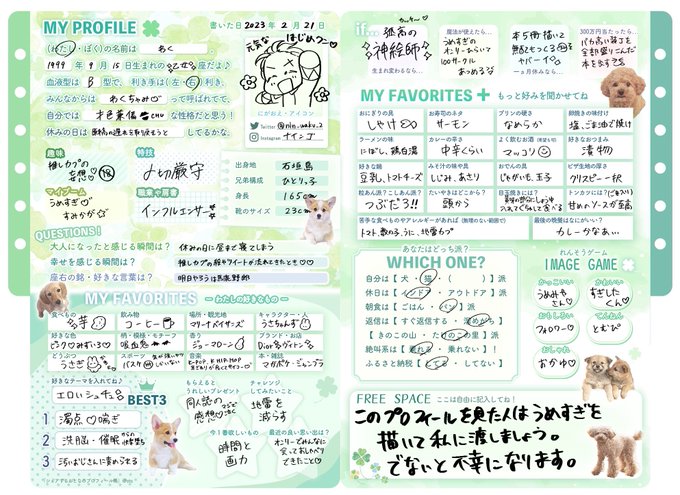 MY PROFILE
書いた日 2023 年 2 月 21 日
(わたし・ぼく)の名前は わく
1999 年 9 月 15 日生まれの乙女座だよ♪
血液型は B 型で、利き手は(左・右)利き
みんなからは わくちゃみ♡ って呼ばれてて、
自分では 才色兼備 な性格だと思う!
休みの日は 原稿の遅れを取り戻そうと してるかな。
元気な
はじめワー♡
にがおえ・アイコン
Twitter
Pixiv ナインJ
趣味
推しカプの
妄想♡
18
特技
〆切厳守
マイブーム
うめすぎ♡
すみかが☆
職業や肩書
インフルエンサー
出身地 石垣島
兄弟構成 ひとりっ子
身長 165cm
靴のサイズ 23cm
QUESTIONS!
大人になったと感じる瞬間は? 休みの日に昼まで寝てしまう
幸せを感じる瞬間は? 推しカプの絵やツイートが流れてきたとき♡♡
座右の銘・好きな言葉は? 明日やろうは馬鹿野郎
MY FAVORITES ーわたしの好きなものー
食べもの 芋
飲み物 コーヒー
場所・観光地 マリーナベイサンズ
キャラクター・人 うさちゃんず♡
好きな色
柄・模様・モチーフ 吸血鬼
香り ジョーマローン
ブランド・お店 Dior
どうぶつ うさぎ
スポーツ バスケ
音楽 K-POP. K HIP-HOP
本・雑誌 マガポケ・ジャンプラ
好きなテーマを入れてね♪
エロいシチュ BEST3
1 濁点♡喘ぎ
2 洗脳・催眠
3 汚いおじさんに変わる
もらえると
うれしいプレゼント
同人誌の
感想♡
チャレンジ
してみたいこと
地雷を
減らす
今1番欲しいもの
時間と
画力
最近の良い思い出は?
オンリーでみんなに
会っておしゃべり
できたこと♡
if…
孤高の
神絵師
生まれ変わるなら…
魔法が使えたら…
うめすぎの
オンリーひらいて
100サークル
あつめる
本5冊描いて
ヤバーイ
一ヵ月休みなら…
300万円当たったら…
本を出す
MY FAVORITES + もっと好みを聞かせてね
おにぎりの具 しゃけ
お寿司のネタ サーモン
プリンの硬さ なめらか
卵焼きの味付け 塩、ごま油で焼け
ラーメンの味 にぼし、鶏白湯
カレーの辛さ 中辛くらい
よく飲むお酒 マッコリ
おつまみ 漬物
好きな鍋 豆乳、トマトチーズ
みそ汁の味や具 しじみ、あさり
おでんの具 じゃがいも、玉子
ピザ生地の厚さ クリスピー一択
粒あん?こしあん? つぶだろ!!
たいやきはどこから? 頭から
目玉焼きには?
トンカツには? 甘めのソースが至高
苦手な食べものやアレルギーがあれば(無理のない範囲で) トマト、数の子、うに、地雷カプ
最後の晩餐はなにがいい? カレーかなぁ…
あなたはどっち派?
WHICH ONE?
自分は【 犬 ・ 猫 ・( )】派
休日は【 インドア ・ アウトドア 】派
朝食は【 ごはん ・ パン 】派
返信は【 すぐ返信する ・ 溜めがち 】
【 きのこの山 ・ たけのこの里 】派
絶叫系は【 乗れる ・ 乗れない 】!
ふるさと納税【 とくする ・ してない 】
れんそうゲーム
IMAGE GAME
かっこいい
うめみや
さん♡
かわいい
すぎした
くん♡
おもしろい
フォロワー♡
てんねん
とむぴ
おしゃれ
おかゆ♡
FREE SPACE ここは自由に記入してね!
このプロフィールを見た人はうめすぎを
描いて私に渡しましょう。
でないと不幸になります。